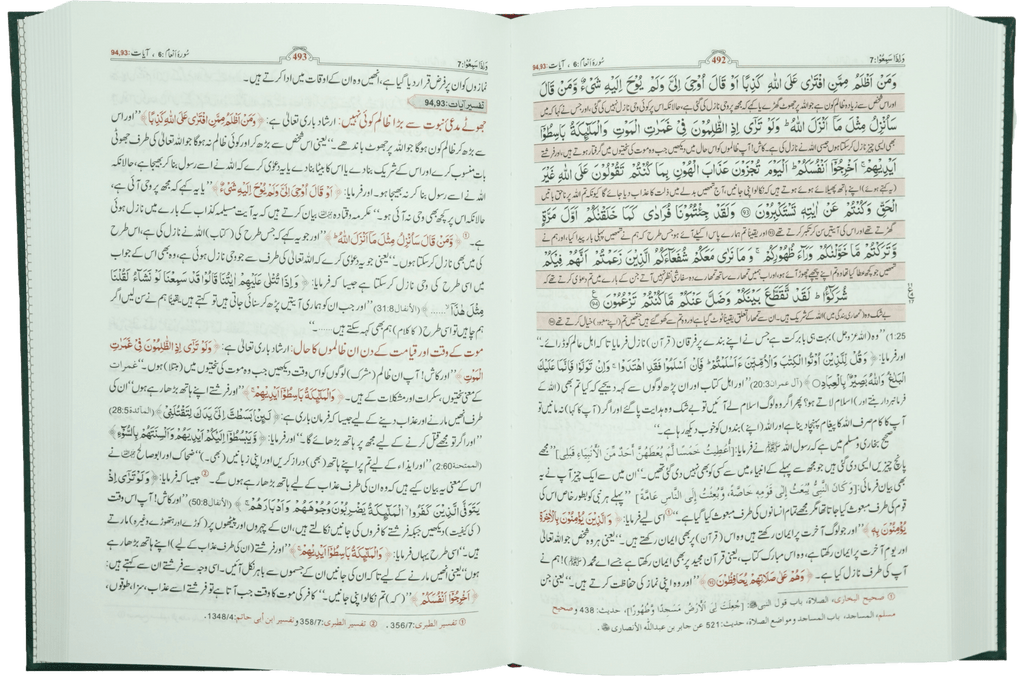 وَاِذَا سَمِعُوْا: 7
492
سُورۂ اَنعام: 6 ، آیات: 94,93
وَمَنْ اَظْلَمُ مِمَّنِ افْتَرٰى عَلَى اللّٰهِ كَذِبًا اَوْ قَالَ اُوْحِيَ اِلَيَّ وَلَمْ يُوْحَ اِلَيْهِ شَيْءٌ وَّمَنْ قَالَ
اور اس شخص سے زیادہ ظالم کون ہے جو اللہ پر جھوٹ گھڑے یا کہے کہ مجھ پر وحی نازل کی گئی ہے، حالانکہ اس پر کوئی وحی نازل نہیں کی گئی، اور جس نے کہا کہ میں
سَاُنْزِلُ مِثْلَ مَاۤ اَنْزَلَ اللّٰهُ ؕ وَلَوْ تَرٰۤى اِذِ الظّٰلِمُوْنَ فِيْ غَمَرٰتِ الْمَوْتِ وَالْمَلٰٓىِٕكَةُ بَاسِطُوْۤا
بھی ایسی چیز نازل کر سکتا ہوں جیسی اللہ نے نازل کی ہے۔ کاش! آپ ظالموں کو اس حال میں دیکھیں جب وہ موت کی سختیوں میں گرفتار ہوتے ہیں، اور فرشتے
اَيْدِيْهِمْ ۚ اَخْرِجُوْۤا اَنْفُسَكُمْ ؕ اَلْيَوْمَ تُجْزَوْنَ عَذَابَ الْهُوْنِ بِمَا كُنْتُمْ تَقُوْلُوْنَ عَلَى اللّٰهِ غَيْرَ
(یہ کہتے ہوئے) اپنے ہاتھ پھیلائے ہوئے ہوتے ہیں کہ نکالو اپنی جانیں، آج تمھیں بدلے میں ذلت کا عذاب دیا جائے گا کیونکہ تم اللہ پر ناحق باتیں
الْحَقِّ وَكُنْتُمْ عَنْ اٰيٰتِهٖ تَسْتَكْبِرُوْنَ ﴿93﴾ وَلَقَدْ جِئْتُمُوْنَا فُرَادٰى كَمَا خَلَقْنٰكُمْ اَوَّلَ مَرَّةٍ
گھڑتے تھے اور اس کی آیتیں سن کر تکبر کرتے تھے ﴿93﴾ اور یقیناً تم ہمارے پاس اکیلے آئے ہو جس طرح کہ ہم نے تمھیں پہلی بار پیدا کیا، اور ہم نے
وَّتَرَكْتُمْ مَّا خَوَّلْنٰكُمْ وَرَآءَ ظُهُوْرِكُمْ ۚ وَمَا نَرٰى مَعَكُمْ شُفَعَآءَكُمُ الَّذِيْنَ زَعَمْتُمْ اَنَّهُمْ فِيْكُمْ
تمھیں جو کچھ عطا کیا تھا وہ تم اپنے پیچھے چھوڑ آئے ہو، اور اب ہمیں تمھارے ساتھ تمھارے وہ سفارشی نظر نہیں آتے جن کے بارے میں تم دعویٰ کرتے تھے کہ
شُرَكٰٓؤُا ؕ لَقَدْ تَّقَطَّعَ بَيْنَكُمْ وَضَلَّ عَنْكُمْ مَّا كُنْتُمْ تَزْعُمُوْنَ ﴿94﴾
بے شک وہ تمھاری بندگی میں اللہ کے شریک ہیں۔ ان سے تمھارا تعلق یقیناً ٹوٹ گیا ہے اور وہ تم سے کھو گئے ہیں جنھیں تم (اپنے معبود) خیال کرتے تھے ﴿94﴾
1:25) ”وہ (اللہ عزوجل) بہت ہی بابرکت ہے جس نے اپنے بندے پر فرقان (قرآن) نازل فرمایا تاکہ اہل عالم کو ڈرائے۔“
اور فرمایا: ﴿وَقُلْ لِّلَّذِيْنَ اُوْتُوا الْكِتٰبَ وَالْاُمِّيّٖنَ ءَاَسْلَمْتُمْ ؕ فَاِنْ اَسْلَمُوْا فَقَدِ اهْتَدَوْا ۚ وَاِنْ تَوَلَّوْا فَاِنَّمَا عَلَيْكَ
الْبَلٰغُ ؕ وَاللّٰهُ بَصِيْرٌۢ بِالْعِبَادِ﴾ (آل عمران 20:3) ”اور اہل کتاب اور ان پڑھ لوگوں سے کہہ دیجیے کہ کیا تم بھی (اللہ کے
فرمانبردار بنتے اور) اسلام لاتے ہو؟ پھر اگر وہ لوگ اسلام لے آئیں تو بے شک وہ ہدایت پا گئے اور اگر (آپ کا کہا) نہ مانیں تو
آپ کا کام صرف اللہ کا پیغام پہنچا دینا ہے اور اللہ (اپنے) بندوں کو خوب دیکھ رہا ہے۔“
صحیح بخاری و مسلم میں ہے کہ رسول اللہ ﷺ نے فرمایا: [أُعْطِيتُ خَمْسًا لَّمْ يُعْطَهُنَّ أَحَدٌ مِّنَ الْأَنْبِيَاءِ قَبْلِي] ”مجھے
پانچ چیزیں ایسی دی گئی ہیں جو مجھ سے پہلے کے انبیاء میں سے کسی کو بھی نہیں دی گئی تھیں۔“ ان میں سے ایک چیز آپ نے یہ
بھی بیان فرمائی: [وَكَانَ النَّبِيُّ يُبْعَثُ إِلَى قَوْمِهِ خَاصَّةً، وَّبُعِثْتُ إِلَى النَّاسِ عَامَّةً] ”پہلے ہر نبی کو بطور خاص اس کی
قوم کی طرف مبعوث کیا جاتا تھا مگر مجھے تمام انسانوں کی طرف مبعوث کیا گیا ہے۔“① اسی لیے فرمایا: ﴿وَالَّذِيْنَ يُؤْمِنُوْنَ بِالْاٰخِرَةِ
يُؤْمِنُوْنَ بِهٖ﴾ ”اور جو لوگ آخرت پر ایمان رکھتے ہیں وہ اس (قرآن) پر بھی ایمان رکھتے ہیں۔“ یعنی ہر وہ شخص جو اللہ تعالیٰ
اور یوم آخرت پر ایمان رکھتا ہے، وہ اس مبارک کتاب، یعنی قرآن مجید پر بھی ایمان رکھتا ہے جسے اے محمد (ﷺ)! ہم نے
آپ کی طرف نازل کیا ہے۔ ﴿وَهُمْ عَلٰى صَلَاتِهِمْ يُحَافِظُوْنَ﴾ ”اور وہ اپنی نماز کی حفاظت کرتے ہیں۔“ یعنی جن
① صحيح البخاري، الصلاة، باب قول النبي ﷺ: [جُعِلَتْ لِيَ الْأَرْضُ مَسْجِدًا وَّطَهُورًا]، حديث: 438 و صحيح
مسلم، المساجد، باب المساجد ومواضع الصلاة، حديث: 521 عن جابر بن عبدالله الأنصاري
وَاِذَا سَمِعُوْا: 7
493
سُورۂ اَنعام: 6 ، آیات: 94,93
نمازوں کو ان پر فرض قرار دیا گیا ہے، انھیں وہ ان کے اوقات میں ادا کرتے ہیں۔
تفسیر آیات: 94,93
جھوٹے مدعیٔ نبوت سے بڑا ظالم کوئی نہیں: ارشاد باری تعالیٰ ہے: ﴿وَمَنْ اَظْلَمُ مِمَّنِ افْتَرٰى عَلَى اللّٰهِ كَذِبًا﴾ ”اور اس
سے بڑھ کر ظالم کون ہوگا جو اللہ پر جھوٹ باندھے۔“ یعنی اس شخص سے بڑھ کر اور کوئی ظالم نہ ہوگا جو اللہ تعالیٰ کی طرف جھوٹی
بات منسوب کرے اور اس کے شریک بنا دے یا اس کا بیٹا بنا دے یا یہ دعویٰ کرے کہ اللہ نے اسے رسول بنا کر بھیجا ہے، حالانکہ
اللہ نے اسے رسول بنا کر نہ بھیجا ہو۔ اور فرمایا: ﴿اَوْ قَالَ اُوْحِيَ اِلَيَّ وَلَمْ يُوْحَ اِلَيْهِ شَيْءٌ﴾ ”یا یہ کہے کہ مجھ پر وحی آئی ہے،
حالانکہ اس پر کچھ بھی وحی نہ آئی ہو۔“ عکرمہ و قتادہ بیان کرتے ہیں کہ یہ آیت مسیلمہ کذاب کے بارے میں نازل ہوئی
ہے۔① ﴿وَّمَنْ قَالَ سَاُنْزِلُ مِثْلَ مَاۤ اَنْزَلَ اللّٰهُ﴾ ”اور جو یہ کہے کہ جس طرح کی (کتاب) اللہ نے نازل کی ہے، اس طرح
کی میں بھی نازل کر سکتا ہوں۔“ یعنی جو یہ دعویٰ کرے کہ اللہ تعالیٰ کی طرف سے جو وحی نازل ہوئی ہے، وہ بھی اس کے جواب
میں اسی طرح کی وحی نازل کر سکتا ہے جیسا کہ فرمایا: ﴿وَاِذَا تُتْلٰى عَلَيْهِمْ اٰيٰتُنَا قَالُوْا قَدْ سَمِعْنَا لَوْ نَشَآءُ لَقُلْنَا
مِثْلَ هٰذَاۤ ......﴾ (الأنفال 31:8) ”اور جب ان کو ہماری آیتیں پڑھ کر سنائی جاتی ہیں تو کہتے ہیں یقیناً ہم نے سن لیں اگر
ہم چاہیں تو اسی طرح (کا کلام) ہم بھی کہہ سکتے ہیں......۔“
موت کے وقت اور قیامت کے دن ان ظالموں کا حال: ارشاد باری تعالیٰ ہے: ﴿وَلَوْ تَرٰۤى اِذِ الظّٰلِمُوْنَ فِيْ غَمَرٰتِ
الْمَوْتِ﴾ ”اور کاش! آپ ان ظالم (مشرک) لوگوں کو اس وقت دیکھیں جب وہ موت کی سختیوں میں (مبتلا) ہوں۔“ غمرات
کے معنی سختیوں، سکرات اور مشکلات کے ہیں۔ ﴿وَالْمَلٰٓىِٕكَةُ بَاسِطُوْۤا اَيْدِيْهِمْ﴾ ”اور فرشتے اپنے ہاتھ بڑھا رہے ہوں“ ان کی
طرف انھیں مارنے اور عذاب دینے کے لیے جیسا کہ فرمان باری ہے: ﴿لَىِٕنْۢ بَسَطْتَّ اِلَيَّ يَدَكَ لِتَقْتُلَنِيْ﴾ (المائدة 28:5)
”اور اگر تو مجھے قتل کرنے کے لیے مجھ پر ہاتھ بڑھائے گا۔“ اور فرمایا: ﴿وَّيَبْسُطُوْۤا اِلَيْكُمْ اَيْدِيَهُمْ وَاَلْسِنَتَهُمْ بِالسُّوْٓءِ﴾
(الممتحنة 2:60) ”اور ایذاء کے لیے تم پر اپنے ہاتھ (بھی) دراز کریں اور اپنی زبانیں (بھی)۔“ ضحاک اور ابوصالح نے
اس کے معنی یہ بیان کیے ہیں کہ وہ ان کی طرف عذاب کے لیے ہاتھ بڑھا رہے ہوں گے۔② جیسا کہ فرمایا: ﴿وَلَوْ تَرٰۤى اِذْ
يَتَوَفَّى الَّذِيْنَ كَفَرُوا الْمَلٰٓىِٕكَةُ يَضْرِبُوْنَ وُجُوْهَهُمْ وَاَدْبَارَهُمْ﴾ (الأنفال 50:8) ”اور کاش! آپ اس وقت
(کی کیفیت) دیکھیں جبکہ فرشتے کافروں کی جانیں نکالتے ہیں، ان کے چہروں اور پیٹھوں پر (کوڑے اور ہتھوڑے وغیرہ) مارتے
ہیں۔“ اسی طرح یہاں فرمایا: ﴿وَالْمَلٰٓىِٕكَةُ بَاسِطُوْۤا اَيْدِيْهِمْ﴾ ”اور فرشتے (ان کی طرف عذاب کے لیے) اپنے ہاتھ بڑھا رہے
ہوں“ یعنی انھیں مارنے کے لیے تاکہ ان کی جانیں ان کے جسموں سے باہر نکل آئیں۔ اسی وجہ سے فرشتے ان سے کہتے ہیں:
﴿اَخْرِجُوْۤا اَنْفُسَكُمْ﴾ ”(کہ) تم نکالو اپنی جانیں۔“ کافر کی موت کا وقت جب آتا ہے تو فرشتے اسے عذاب، سزا، طوقوں،
① تفسير الطبري: 356/7. ② تفسير الطبري: 358/7 و تفسير ابن أبي حاتم: 1348/4.